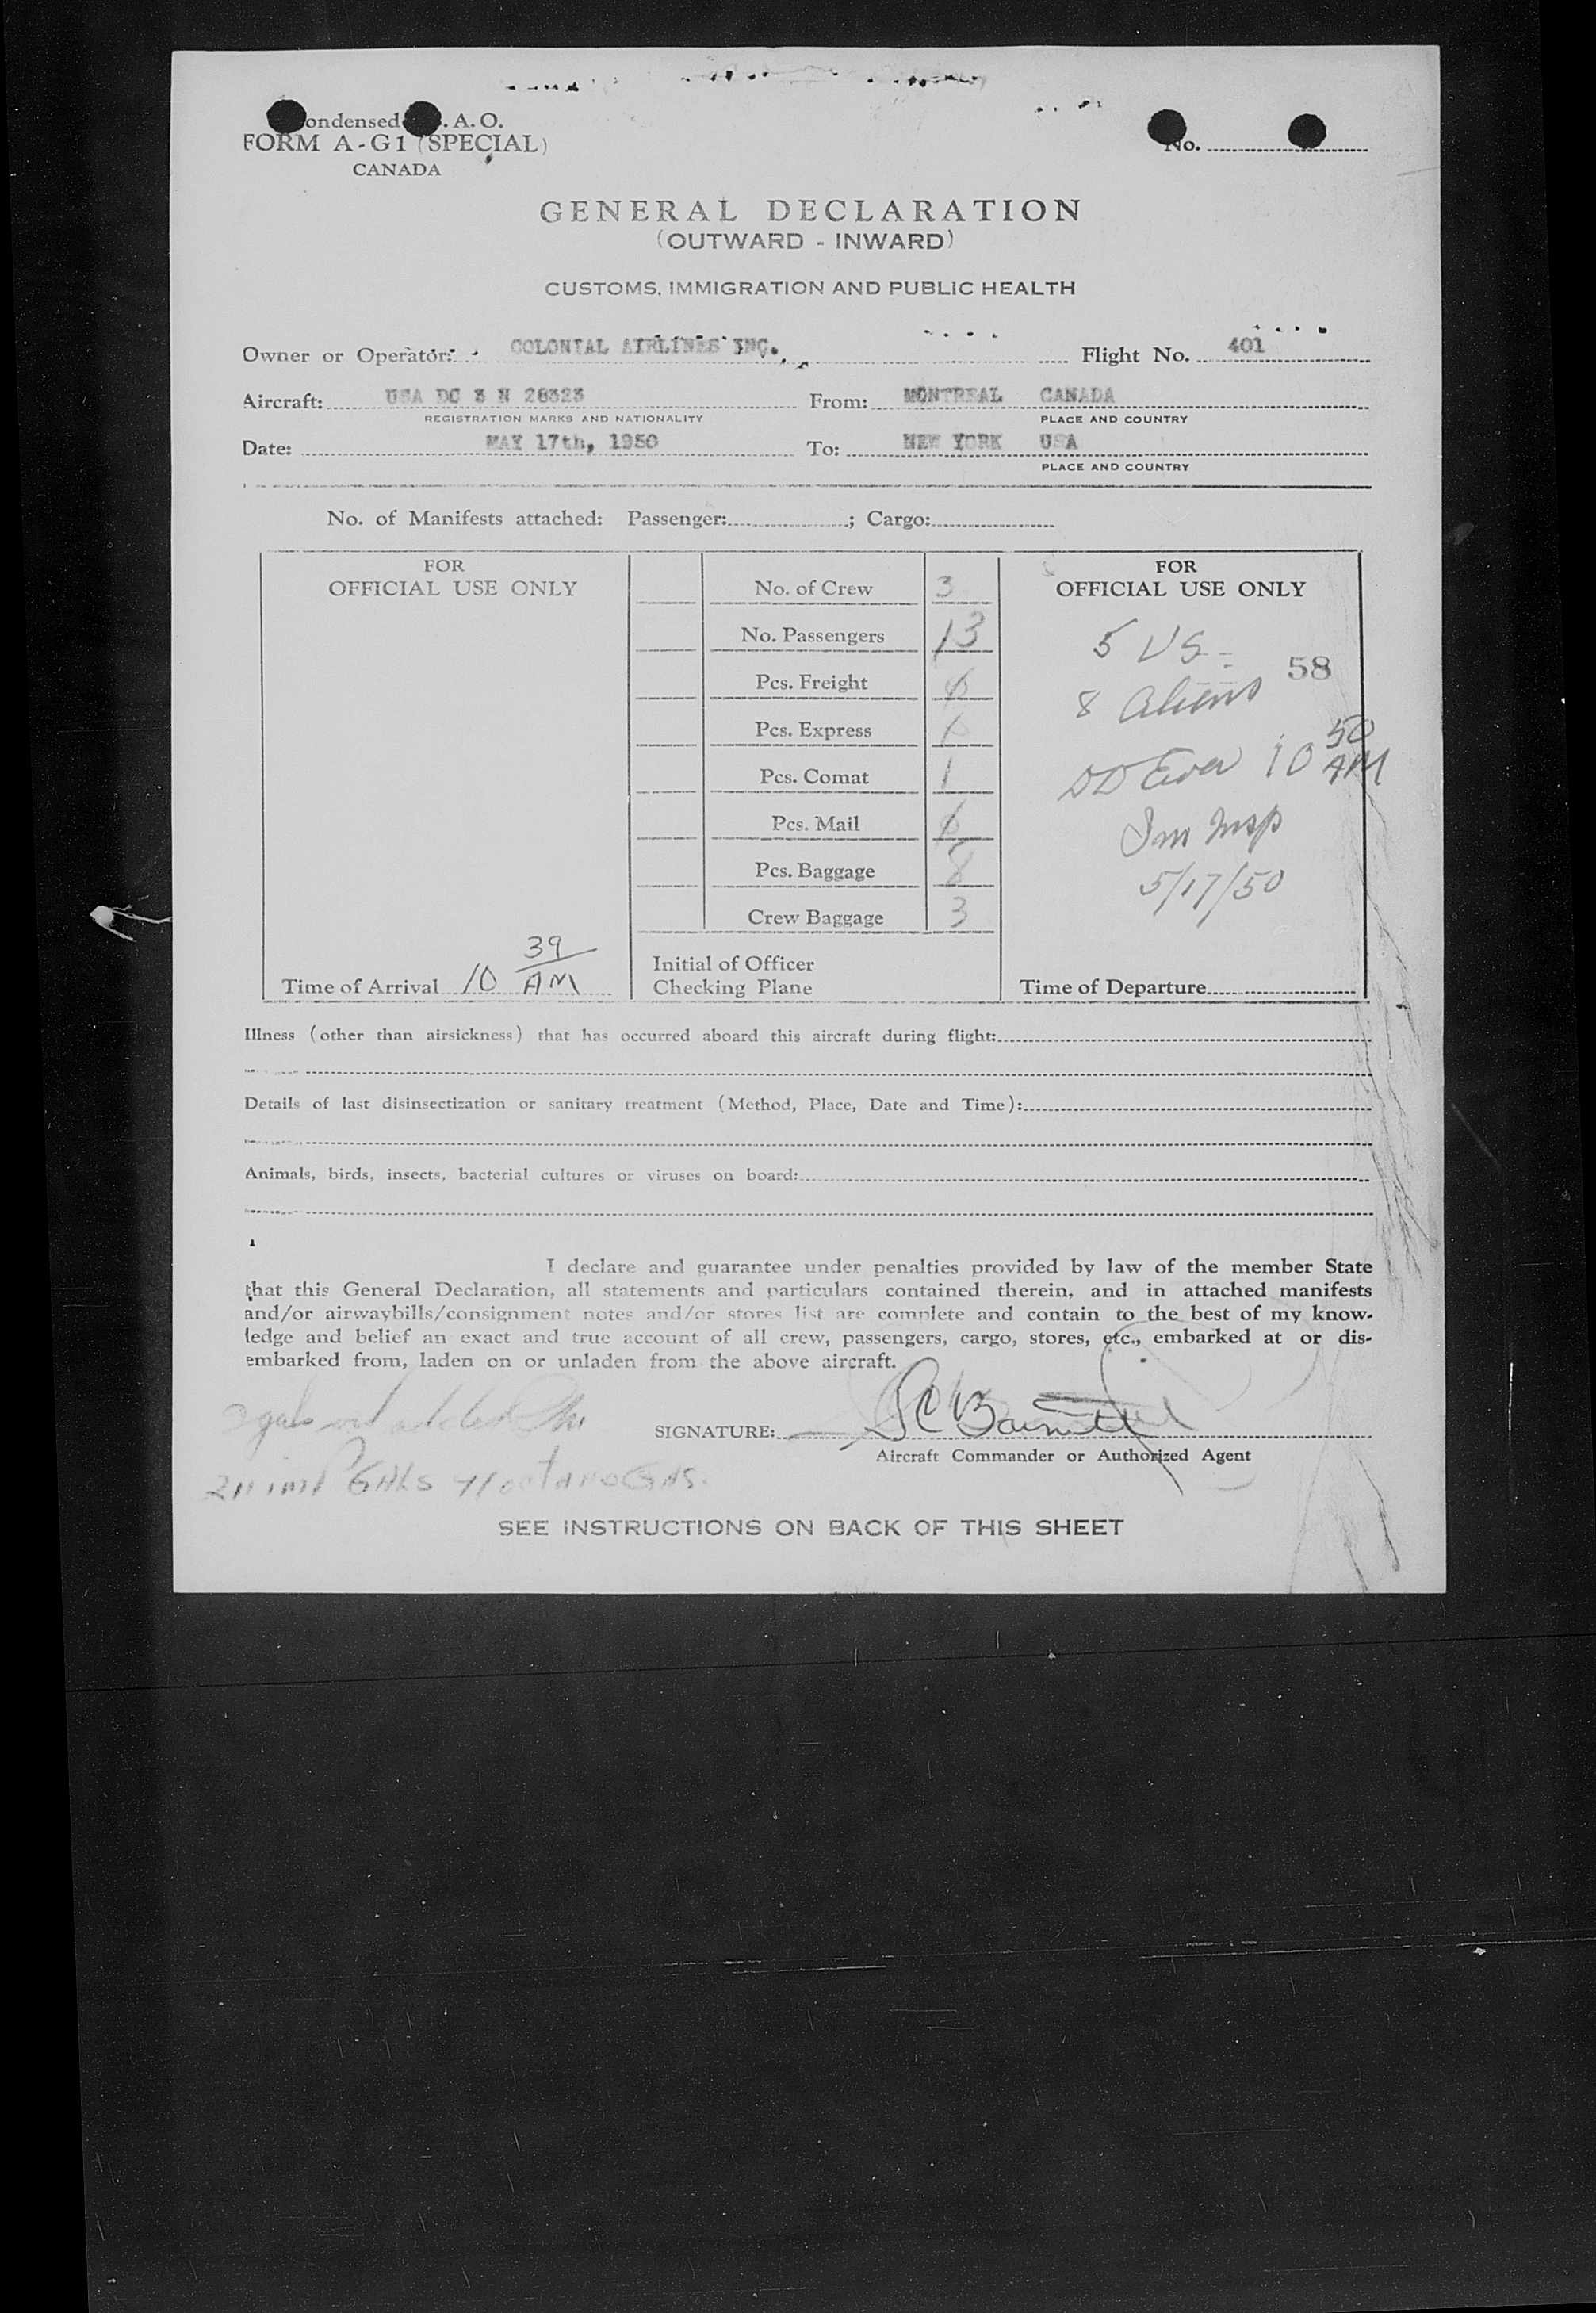 ondensed . A. O.
FORM A-G1 (SPECIAL)
CANADA
No.
GENERAL DECLARATION
(OUTWARD - INWARD)
CUSTOMS, IMMIGRATION AND PUBLIC HEALTH
Owner or Operator: COLONIAL AIRLINES INC. Flight No. 401
Aircraft: USA DC 3 N 28323 From: MONTREAL CANADA
REGISTRATION MARKS AND NATIONALITY PLACE AND COUNTRY
Date: MAY 17th, 1950 To: NEW YORK USA
PLACE AND COUNTRY
No. of Manifests attached: Passenger: ; Cargo:
FOR
OFFICIAL USE ONLY
Time of Arrival 10 39 AM
No. of Crew 3
No. Passengers 13
Pcs. Freight
Pcs. Express
Pcs. Comat 1
Pcs. Mail
Pcs. Baggage 8
Crew Baggage 3
Initial of Officer
Checking Plane
FOR
OFFICIAL USE ONLY
5 US
58
8 Aliens
10 50 AM
Im Insp
5/17/50
Time of Departure
Illness (other than airsickness) that has occurred aboard this aircraft during flight:
Details of last disinsectization or sanitary treatment (Method, Place, Date and Time):
Animals, birds, insects, bacterial cultures or viruses on board:
I declare and guarantee under penalties provided by law of the member State
that this General Declaration, all statements and particulars contained therein, and in attached manifests
and/or airwaybills/consignment notes and/or stores list are complete and contain to the best of my know-
ledge and belief an exact and true account of all crew, passengers, cargo, stores, etc., embarked at or dis-
embarked from, laden on or unladen from the above aircraft.
SIGNATURE:
Aircraft Commander or Authorized Agent
SEE INSTRUCTIONS ON BACK OF THIS SHEET